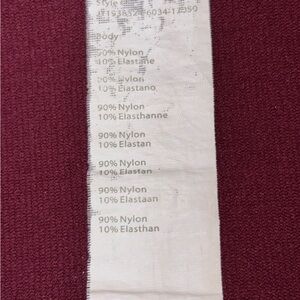 Style
Body
90% Nylon
10% Elastane
90% Nylon
10% Elastano
90% Nylon
10% Elasthanne
90% Nylon
10% Elastan
90% Nylon
10% Elastan
90% Nylon
10% Elastaan
90% Nylon
10% Elasthan